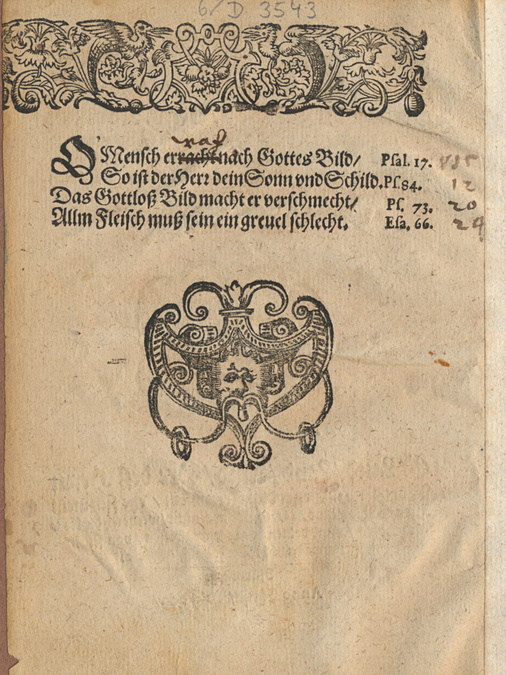 6/D 3543
O Mensch erracht nach Gottes Bild/ Psal. 17. v15
So ist der Herr dein Sonn vnd Schild. Ps. 84. 12
Das Gottloß Bild macht er verschmecht/ Ps. 73. 20
Allm Fleisch muß sein ein greuel schlecht. Esa. 66. 24